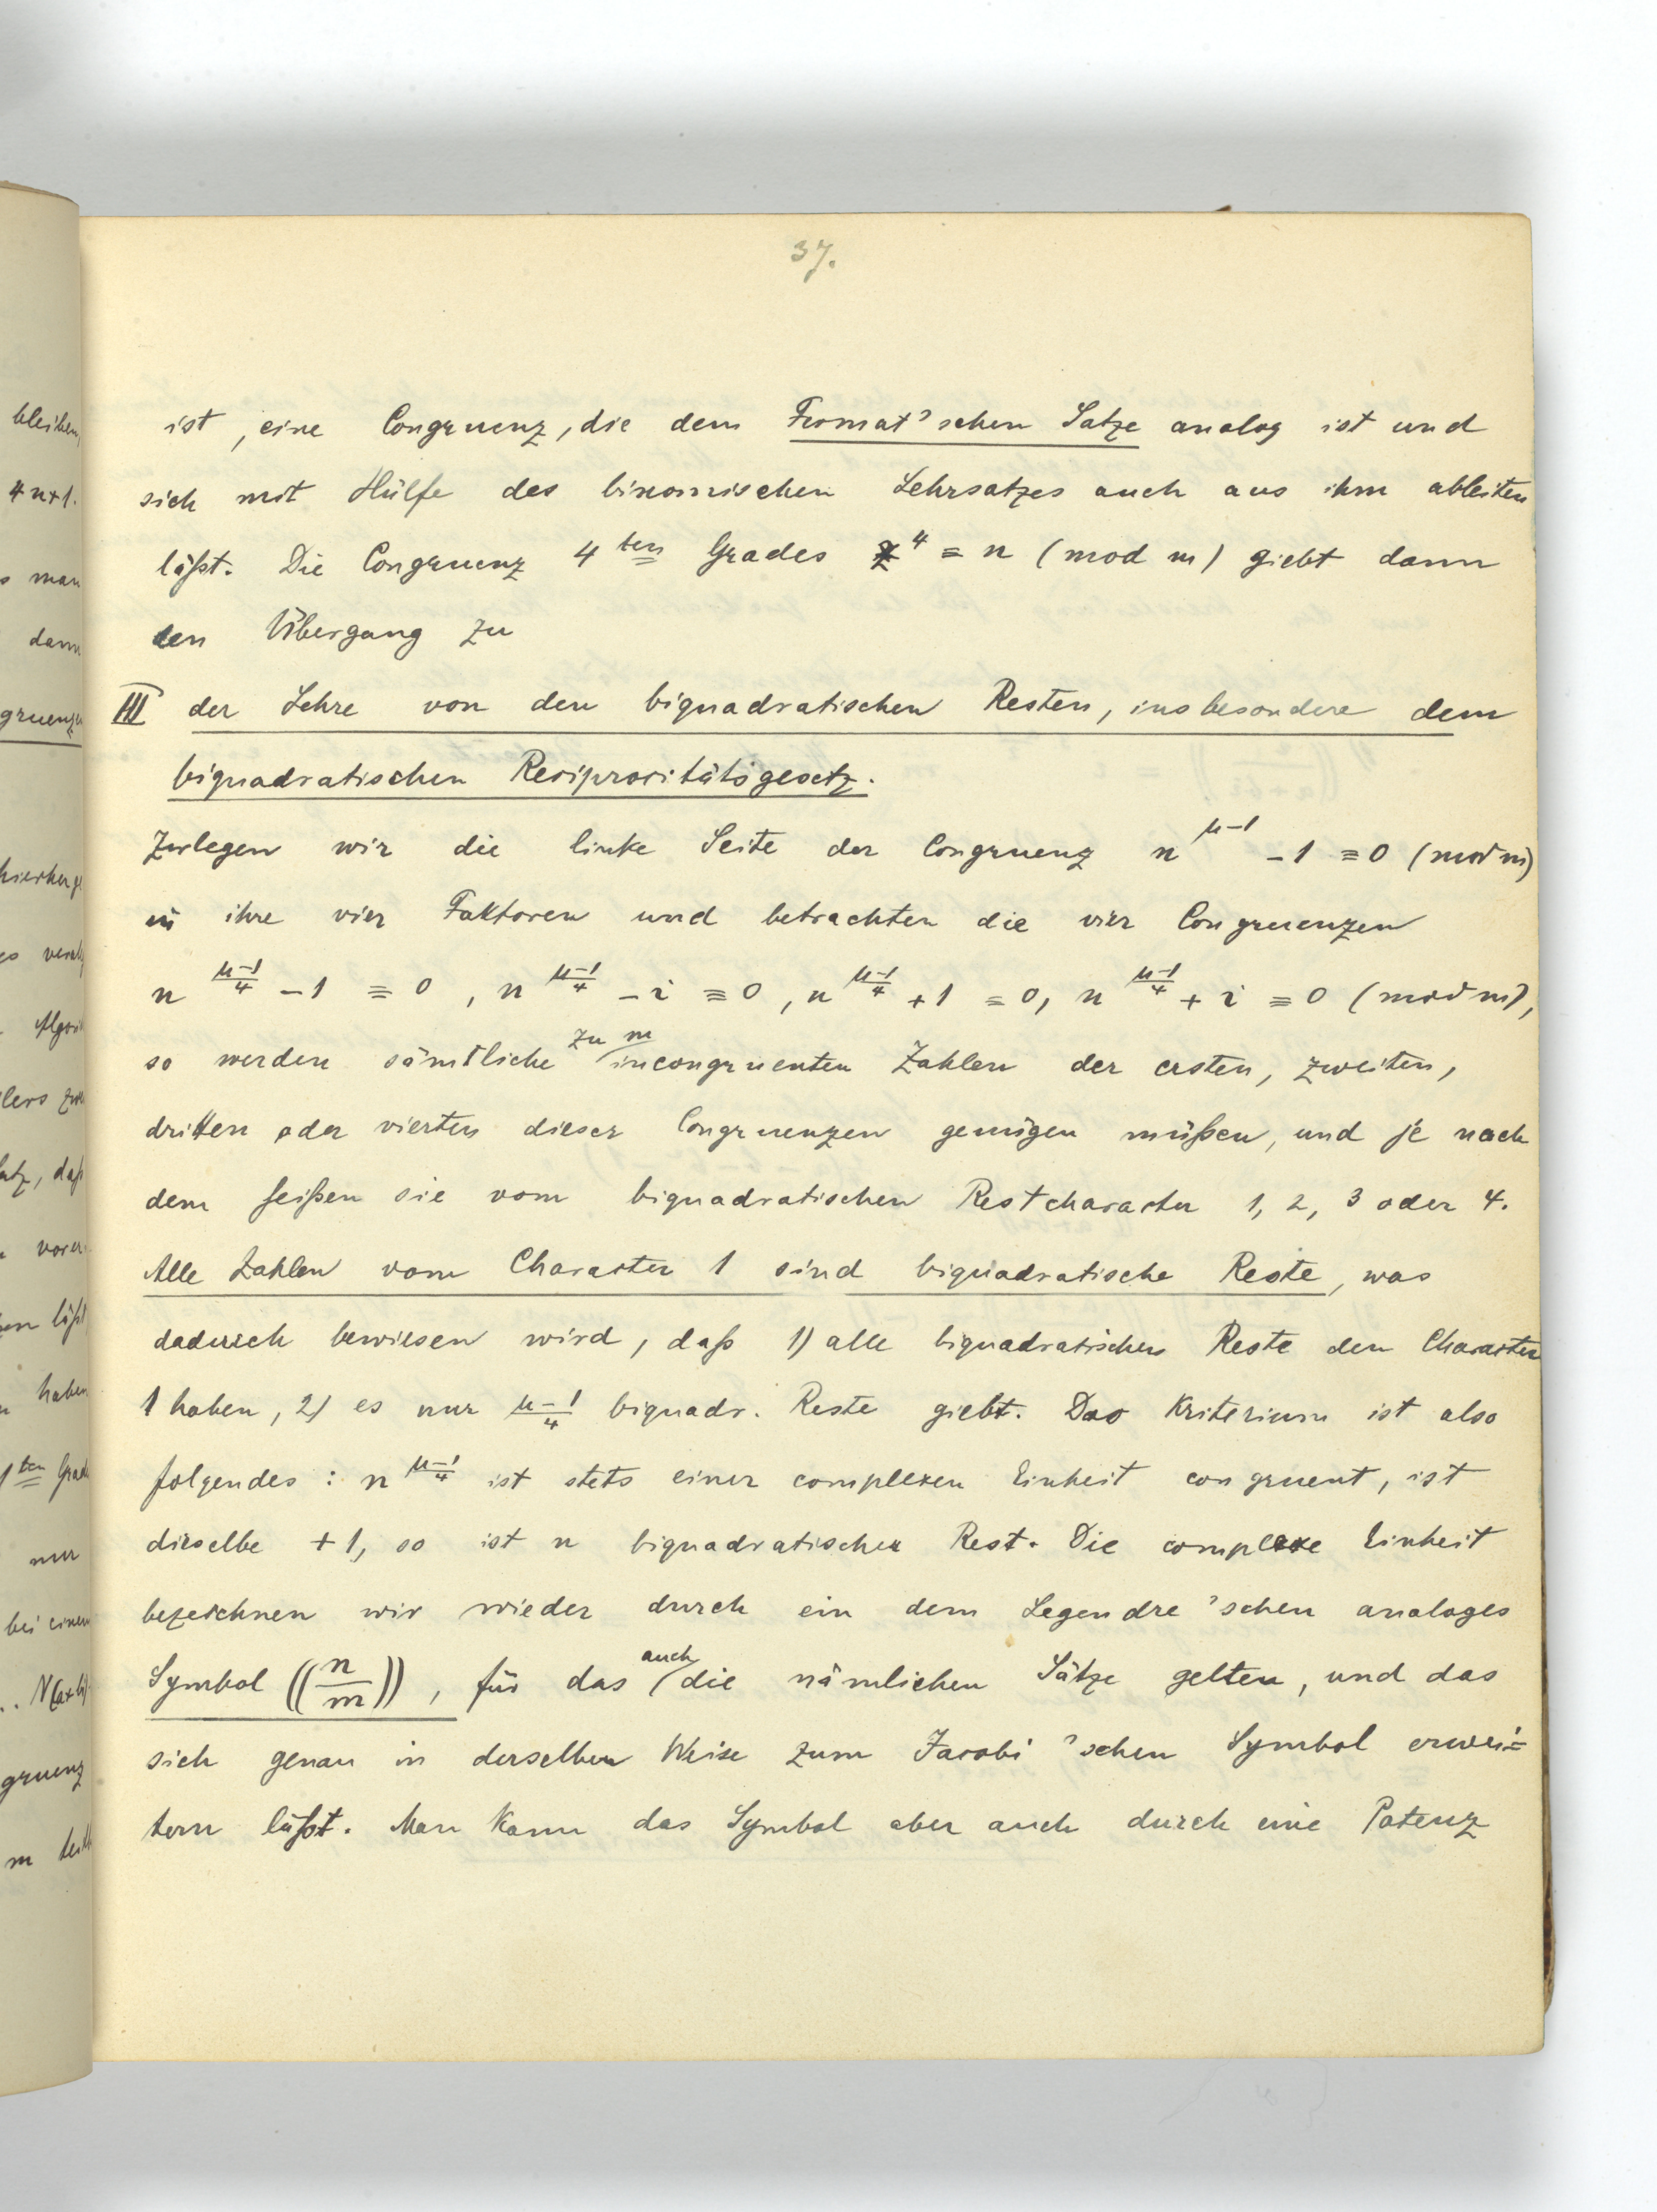 37.
ist, eine Congruenz, die dem Fermat'schen Satze analog ist und
sich mit Hülfe des binomischen Lehrsatzes auch aus ihm ableiten
läßt. Die Congruenz 4ten Grades z⁴ ≡ n (mod m) giebt dann
den Übergang zu
III der Lehre von den biquadratischen Resten, insbesondere dem
biquadratischen Reciprocitätsgesetz.
Zerlegen wir die linke Seite der Congruenz n^(μ-1) - 1 ≡ 0 (mod m)
in ihre vier Faktoren und betrachten die vier Congruenzen
n^((μ-1)/4) - 1 ≡ 0, n^((μ-1)/4) - i ≡ 0, n^((μ-1)/4) + 1 ≡ 0, n^((μ-1)/4) + i ≡ 0 (mod m),
so werden sämtliche zu m incongruenten Zahlen der ersten, zweiten,
dritten oder vierten dieser Congruenzen genügen müßen, und je nach
dem heißen sie vom biquadratischen Restcharacter 1, 2, 3 oder 4.
Alle Zahlen vom Character 1 sind biquadratische Reste, was
dadurch bewiesen wird, daß 1) alle biquadratischen Reste den Character
1 haben, 2) es nur (μ-1)/4 biquadr. Reste giebt. Das Kriterium ist also
folgendes: n^((μ-1)/4) ist stets einer complexen Einheit congruent, ist
dieselbe +1, so ist n biquadratischer Rest. Die complexe Einheit
bezeichnen wir wieder durch ein dem Legendre'schen analoges
Symbol ((n/m)), für das auch die nämlichen Sätze gelten, und das
sich genau in derselben Weise zum Jacobi'schen Symbol erwei=
tern läßt. Man kann das Symbol aber auch durch eine Potenz
bleiben,
4n+1.
man
dann
gruenzen
haben
1ten Grad
nur
bei einem
N(a+bi)
gruenz
m